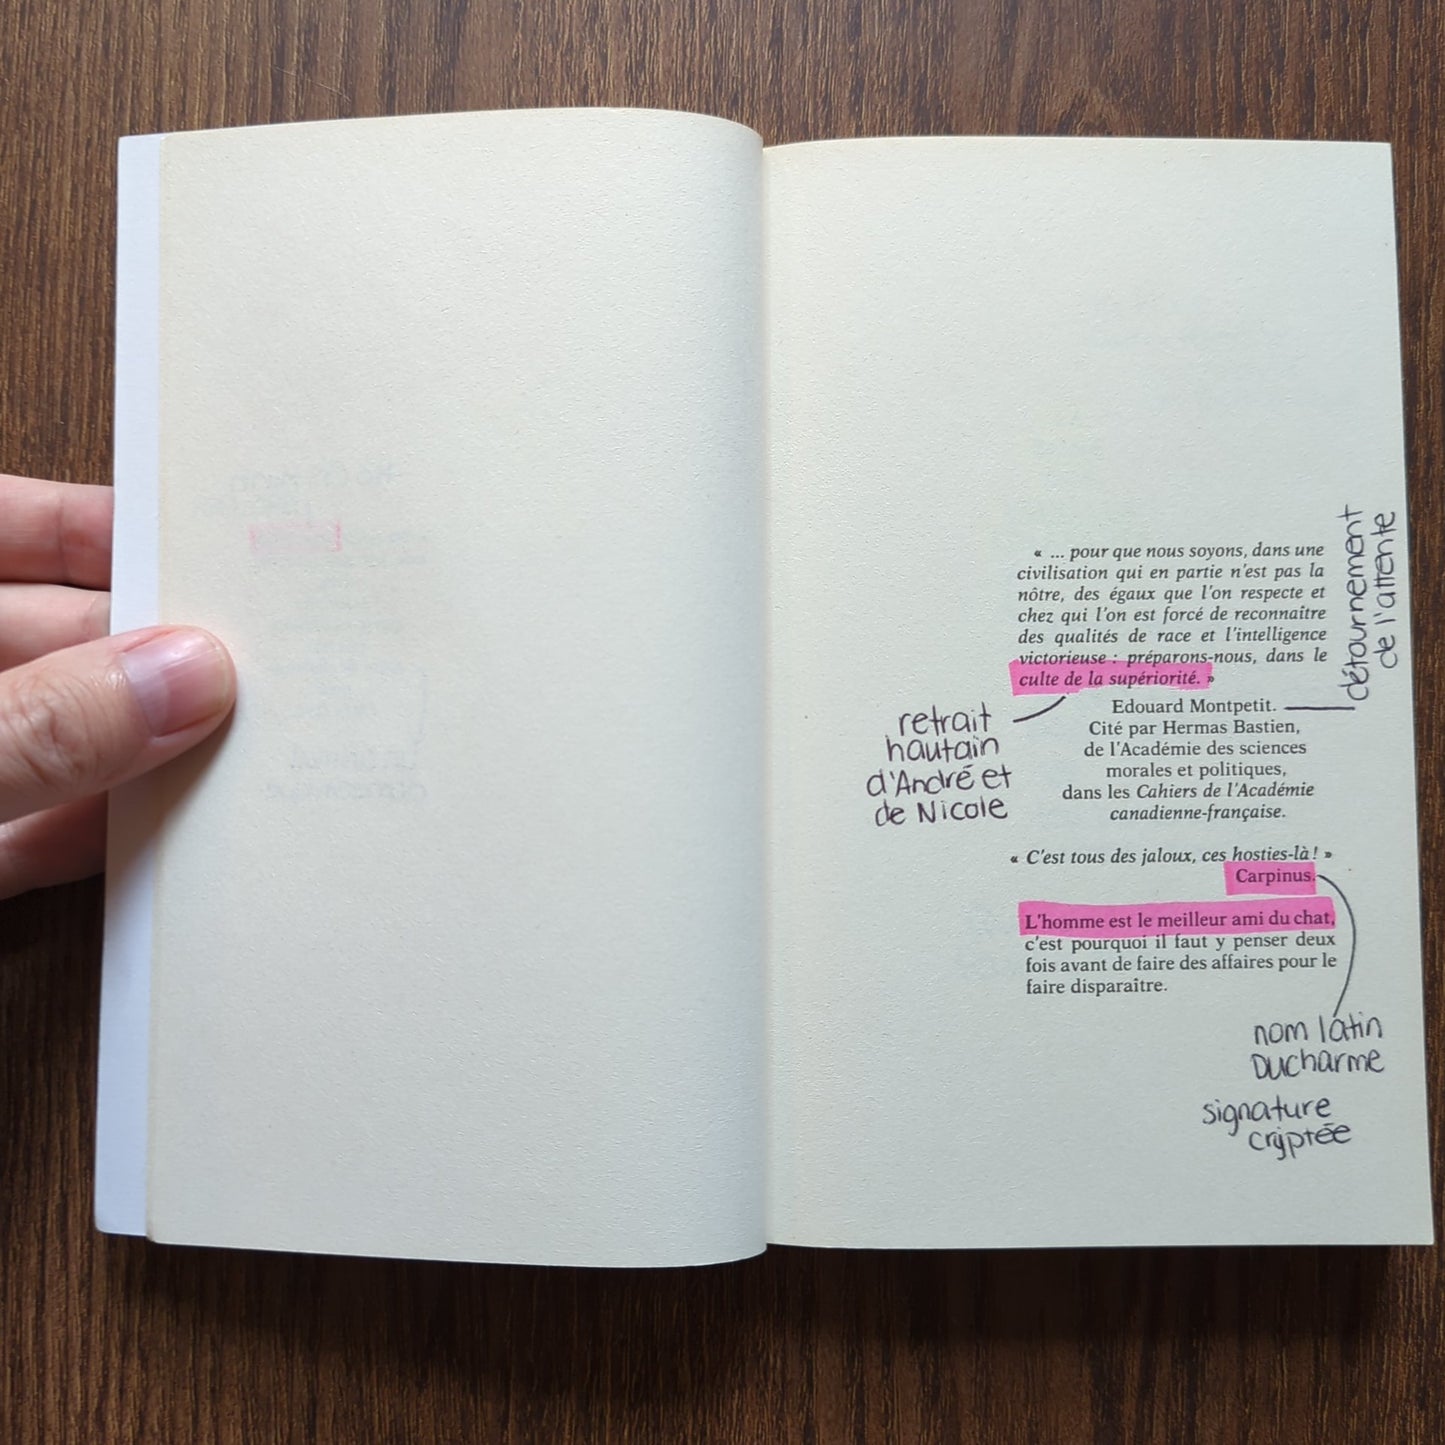 « ... pour que nous soyons, dans une
civilisation qui en partie n'est pas la
nôtre, des égaux que l'on respecte et
chez qui l'on est forcé de reconnaître
des qualités de race et l'intelligence
victorieuse : préparons-nous, dans le
culte de la supériorité. »
détournement
de l'attente
retrait
hautain
d'André et
de Nicole
Edouard Montpetit.
Cité par Hermas Bastien,
de l'Académie des sciences
morales et politiques,
dans les Cahiers de l'Académie
canadienne-française.
« C'est tous des jaloux, ces hosties-là ! »
Carpinus.
L'homme est le meilleur ami du chat,
c'est pourquoi il faut y penser deux
fois avant de faire des affaires pour le
faire disparaître.
nom latin
Ducharme
signature
cryptée